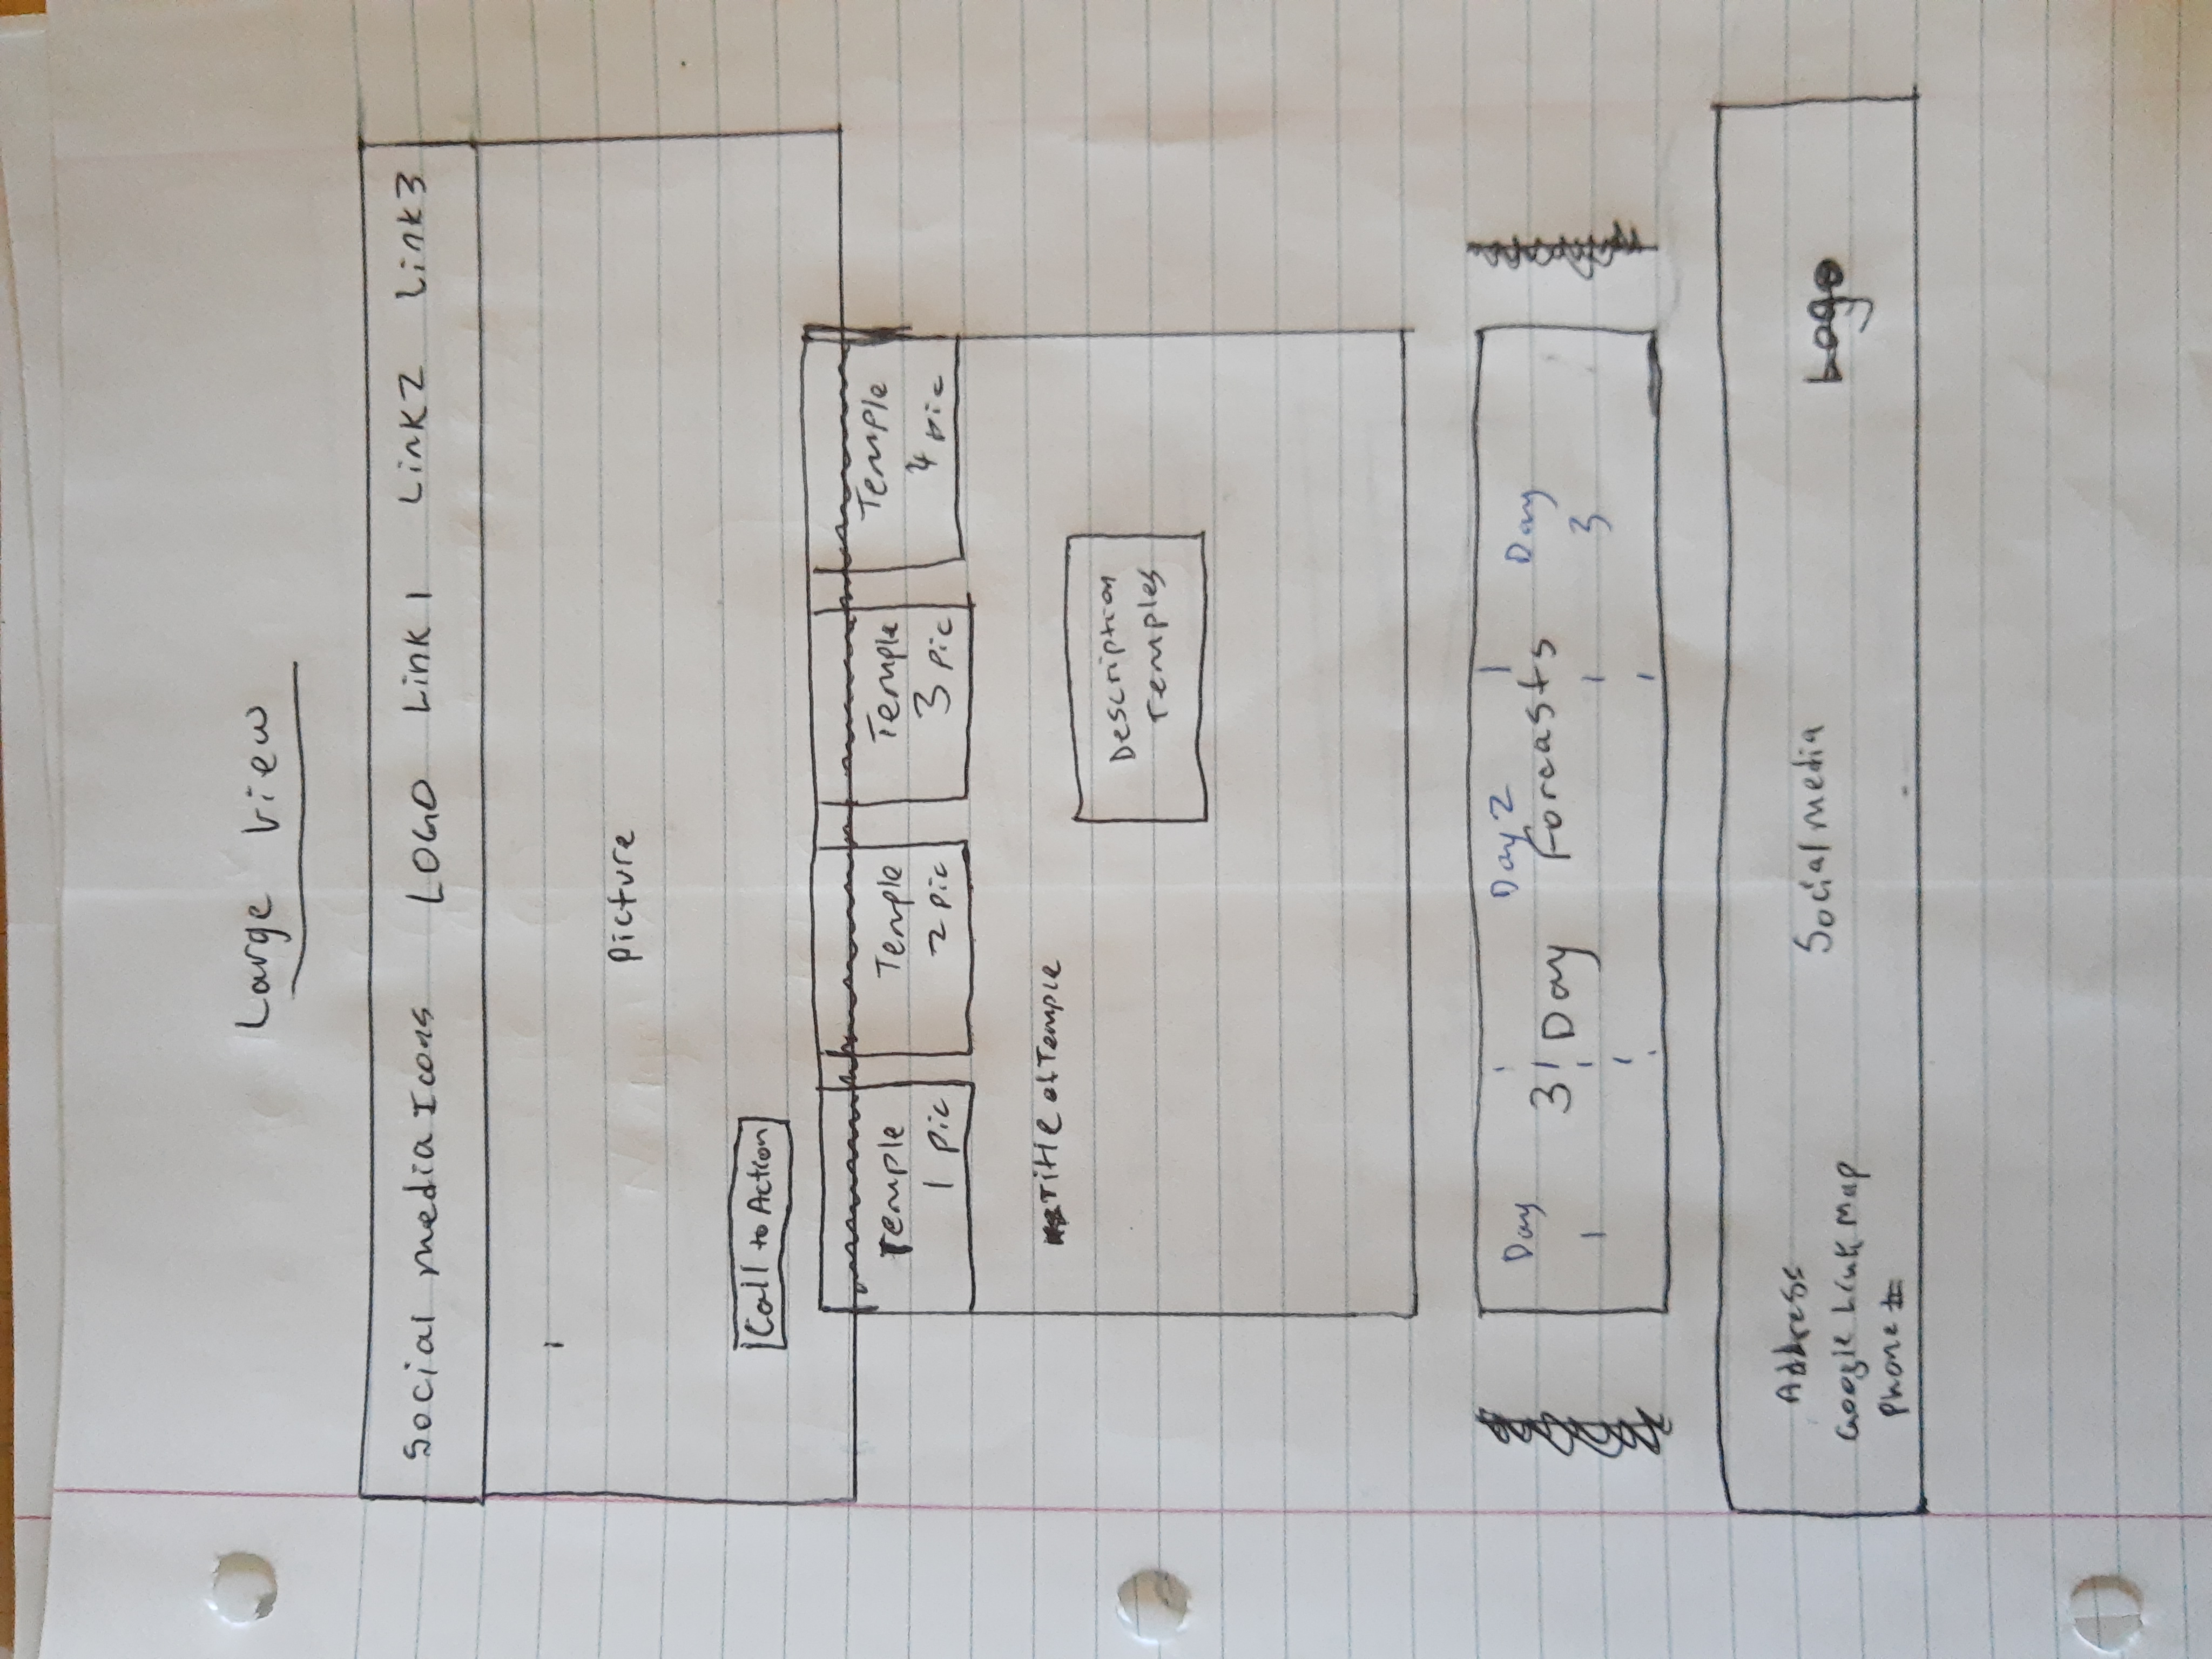 Large View
Social media Icons LOGO Link 1 Link2 Link3
Picture
Call to Action
Temple
1 pic
Temple
2 pic
Temple
3 pic
Temple
4 pic
Title of Temple
Description
Temples
Day
1
Day 2
Day
3
3 Day Forcasts
Address
Google Link Map
Phone #
Social media
Logo